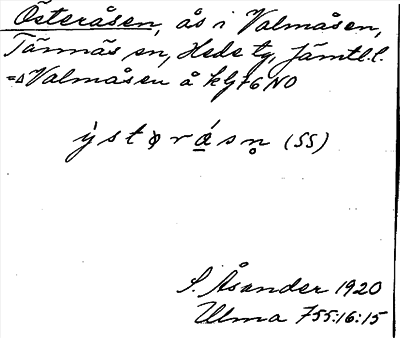 Österåsen, ås i Valmåsen,
Tännäs sn, Hede tg, Jämtl. l.
=∆ Valmåsen å kbl 76 NO
ỳstørásn̥ (SS)
S. Åsander 1920
Ulma 755:16:15